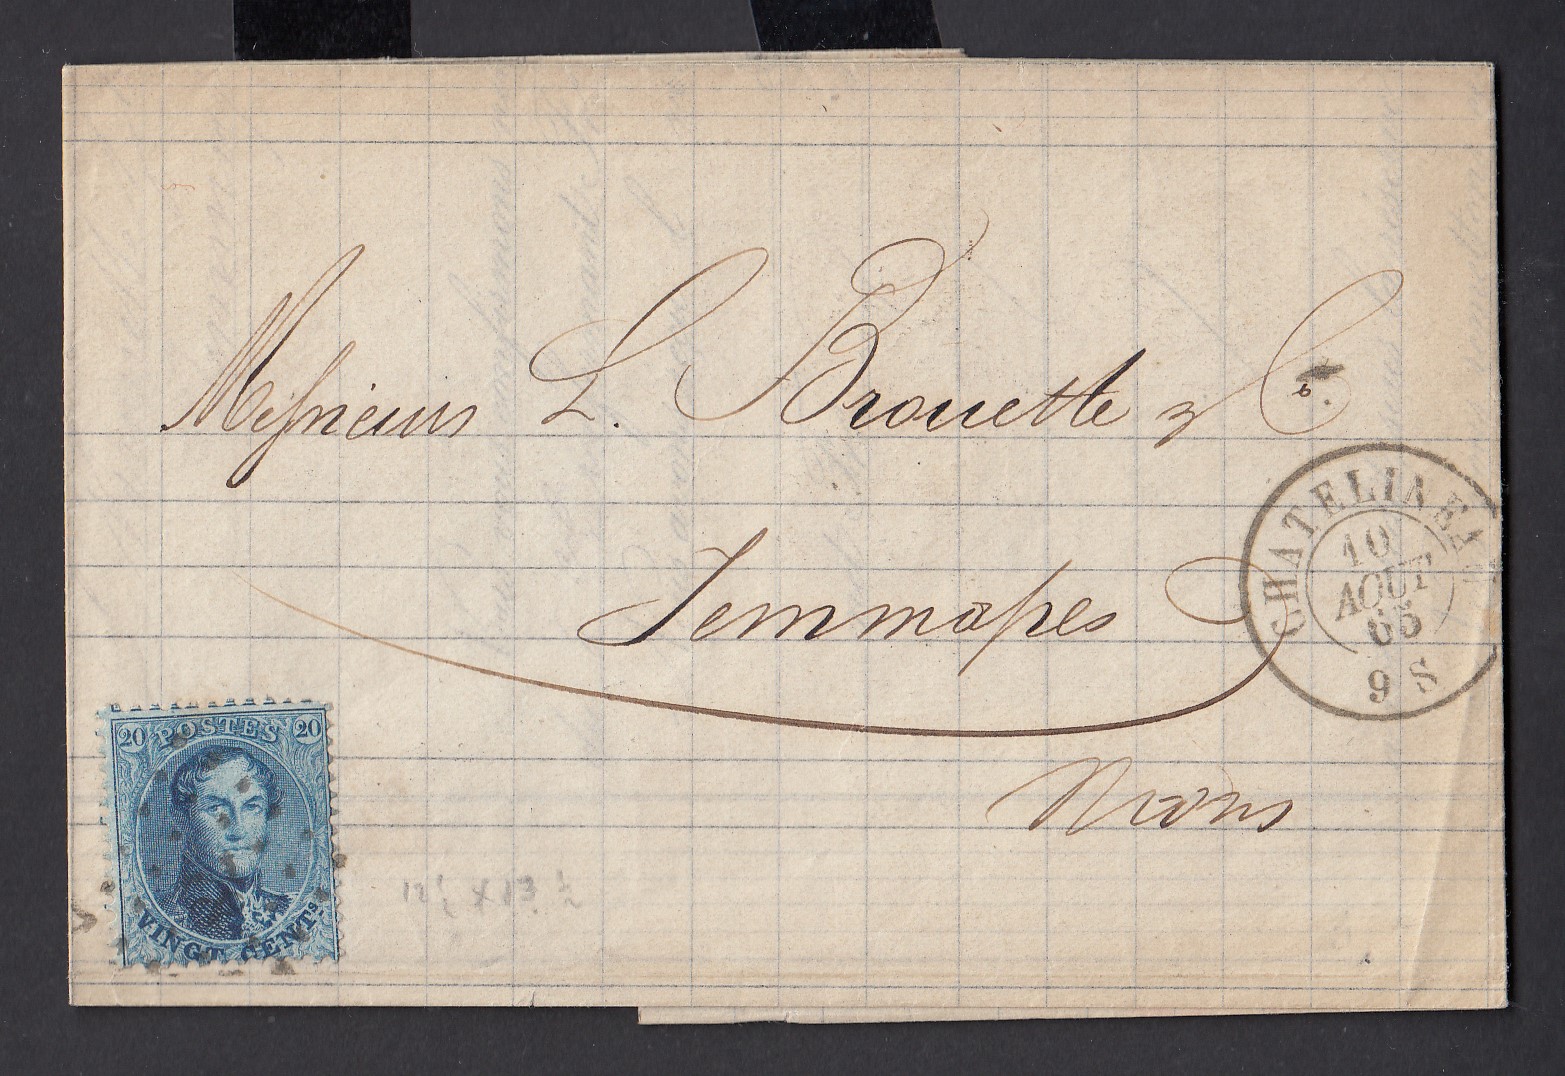 Messieurs L. Brouette & Co.
Jemmapes
Mons
CHATELINEA
10
AOUT
65
9 S
20 POSTES 20
VINGT CENTS
12½ x 13½